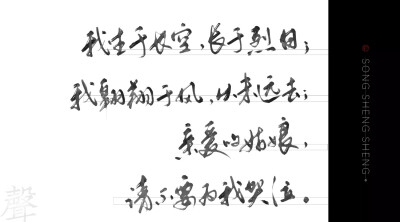 我生于长空，长于烈日；
我翱翔于风，从未远去；
亲爱的姑娘，
请不要为我哭泣。
SONG SHENG SHENG
聲